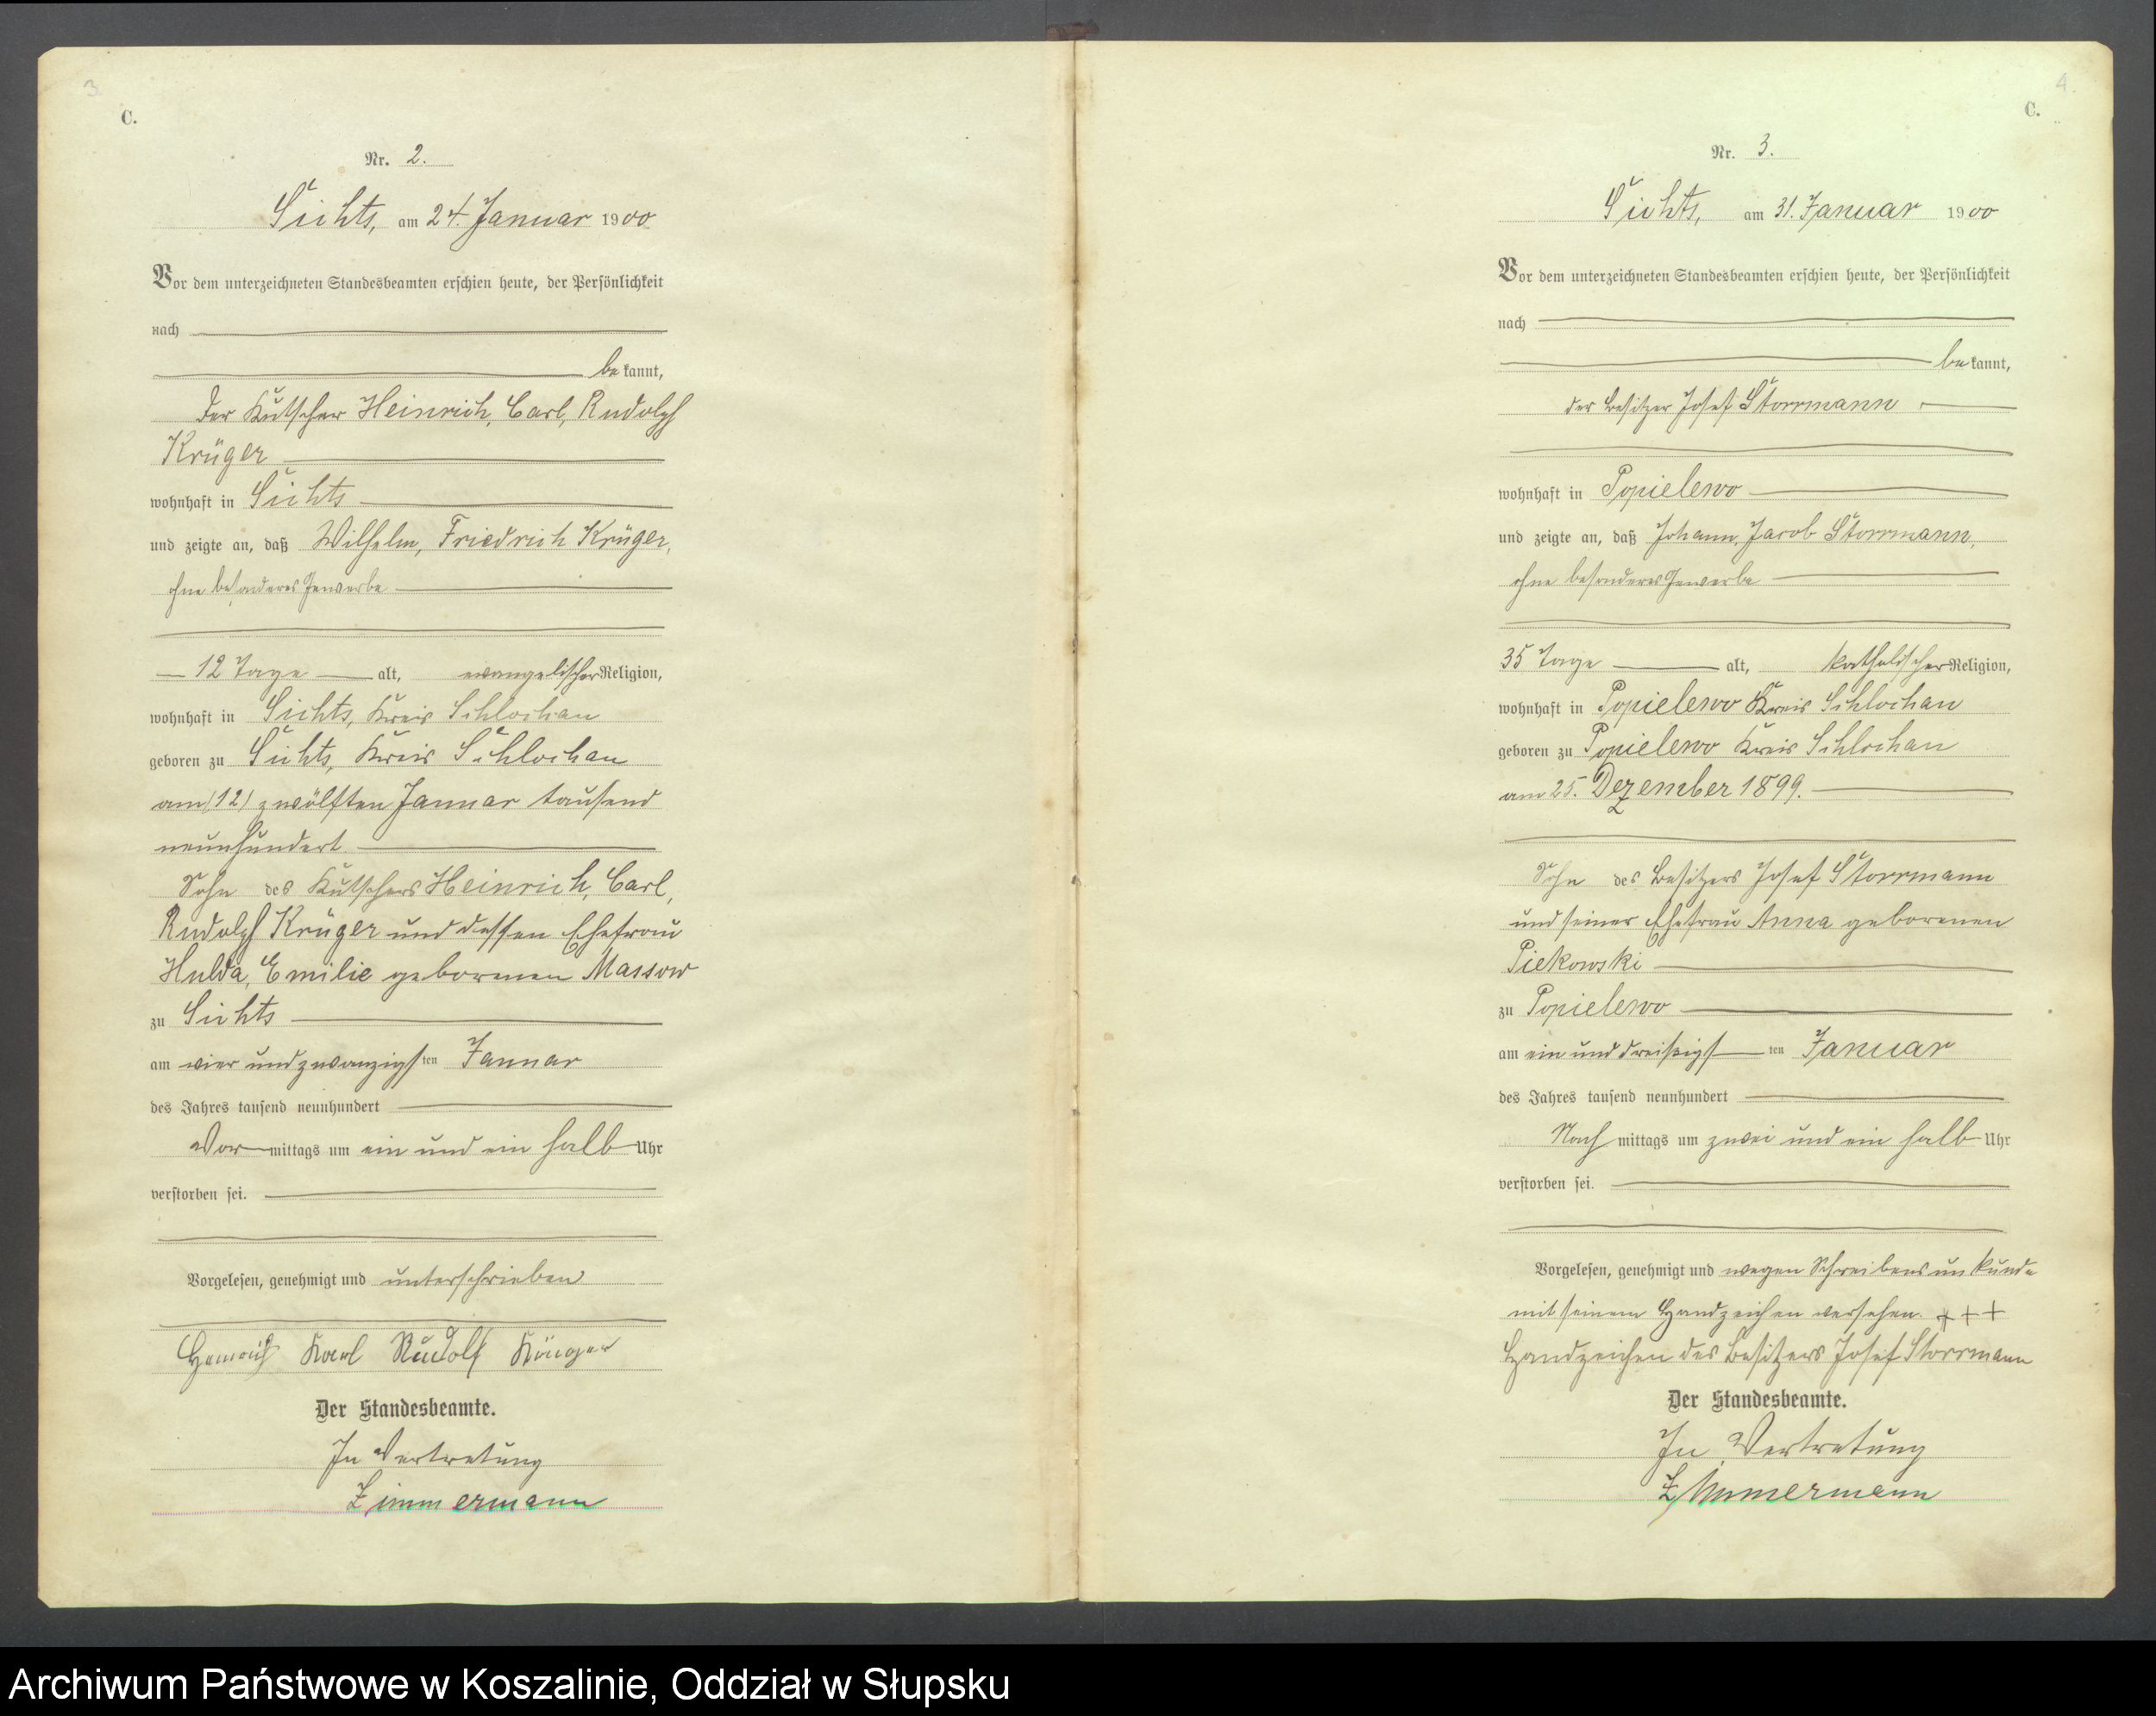 3.
C.
Nr. 2.
Sichts, am 24. Januar 1900
Vor dem unterzeichneten Standesbeamten erschien heute, der Persönlichkeit
nach
bekannt,
der Kutscher Heinrich, Carl, Rudolph
Krüger
wohnhaft in Sichts
und zeigte an, daß Wilhelm, Friedrich Krüger,
ohne besonderes Gewerbe
12 Tage alt, evangelischer Religion,
wohnhaft in Sichts, Kreis Schlochau
geboren zu Sichts, Kreis Schlochau
am (12) zwölften Januar tausend
neunhundert
Sohn des Kutschers Heinrich, Carl,
Rudolph Krüger und dessen Ehefrau
Hulda, Emilie geborenen Massow
zu Sichts
am vier und zwanzigsten Januar
des Jahres tausend neunhundert
Vormittags um ein und ein halb Uhr
verstorben sei.
Vorgelesen, genehmigt und unterschrieben
Heinrich Karl Rudolf Krüger
Der Standesbeamte.
In Vertretung
Zimmermann
4.
C.
Nr. 3.
Sichts, am 31. Januar 1900
Vor dem unterzeichneten Standesbeamten erschien heute, der Persönlichkeit
nach
bekannt,
der Besitzer Josef Storrmann
wohnhaft in Popielewo
und zeigte an, daß Johann, Jacob Storrmann,
ohne besonderes Gewerbe
35 Tage alt, katholischer Religion,
wohnhaft in Popielewo Kreis Schlochau
geboren zu Popielewo Kreis Schlochau
am 25. Dezember 1899.
Sohn des Besitzers Josef Storrmann
und seiner Ehefrau Anna geborenen
Piekowski
zu Popielewo
am ein und dreißigsten Januar
des Jahres tausend neunhundert
Nachmittags um zwei und ein halb Uhr
verstorben sei.
Vorgelesen, genehmigt und wegen Schreibensunkunde
mit seinem Handzeichen versehen. +++
Handzeichen des Besitzers Josef Storrmann
Der Standesbeamte.
In Vertretung
Zimmermann
Archiwum Państwowe w Koszalinie, Oddział w Słupsku